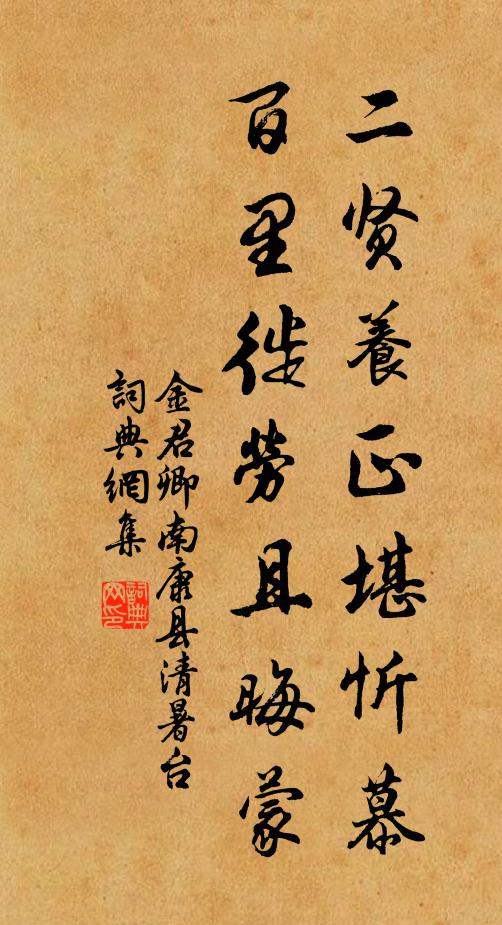 二贤養正堪忻慕
百里徒勞且晦蒙
金君卿南康县清暑台
詞典網集
詞典网印